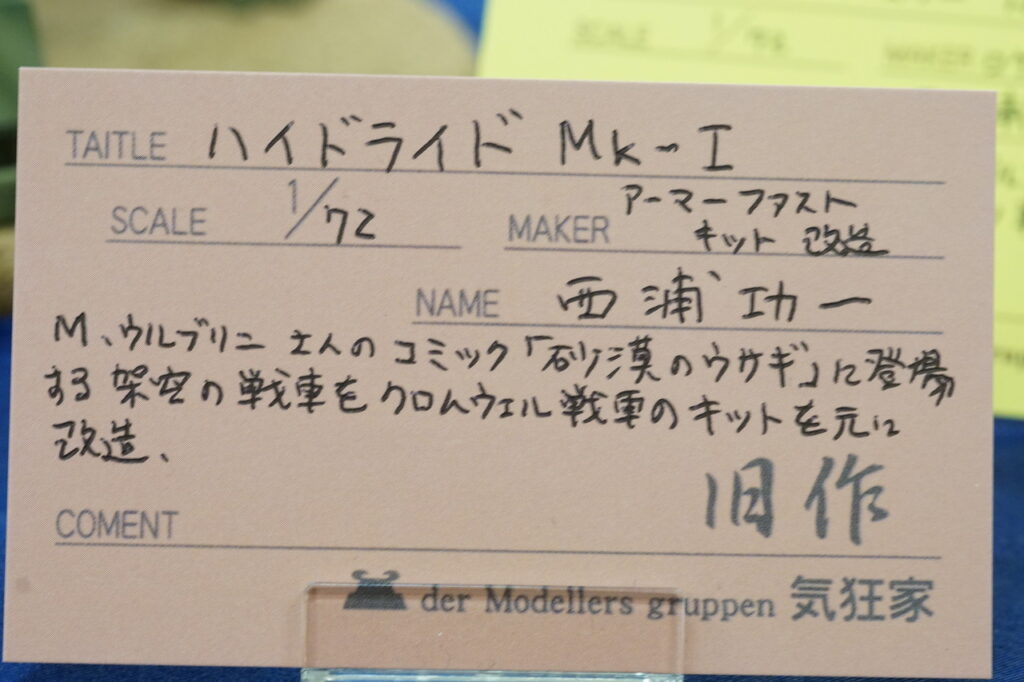 TAITLE ハイドライド Mk-I
SCALE 1/72
MAKER アーマーファスト
キット 改造
NAME 西浦功一
M、ウルブリニさんのコミック「砂漠のウサギ」に登場
する架空の戦車をクロムウェル戦車のキットを元に
改造、
旧作
COMENT
der Modellers gruppen 気狂家
SCALE 1/72
MAKER